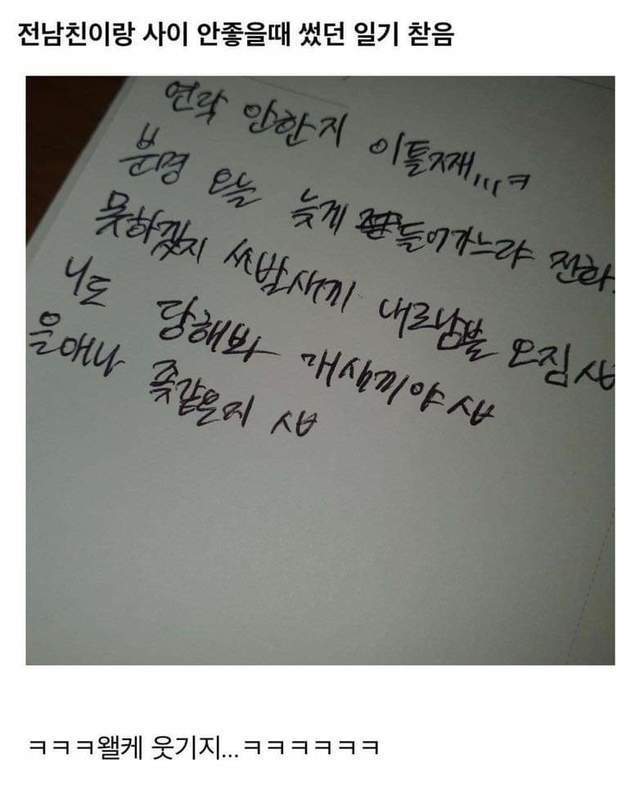 전남친이랑 사이 안좋을때 썼던 일기 찯음
연락 안한지 이틀째,,,ㅋ
분명 오늘 늦게 들어가느라 전화
못하겠지 씨발새끼 내로남불 오짐 시발
니도 당해봐 개새끼야 ㅅㅂ
을매나 좆같은지 ㅅㅂ
ㅋㅋㅋ왤케 웃기지...ㅋㅋㅋㅋㅋㅋ